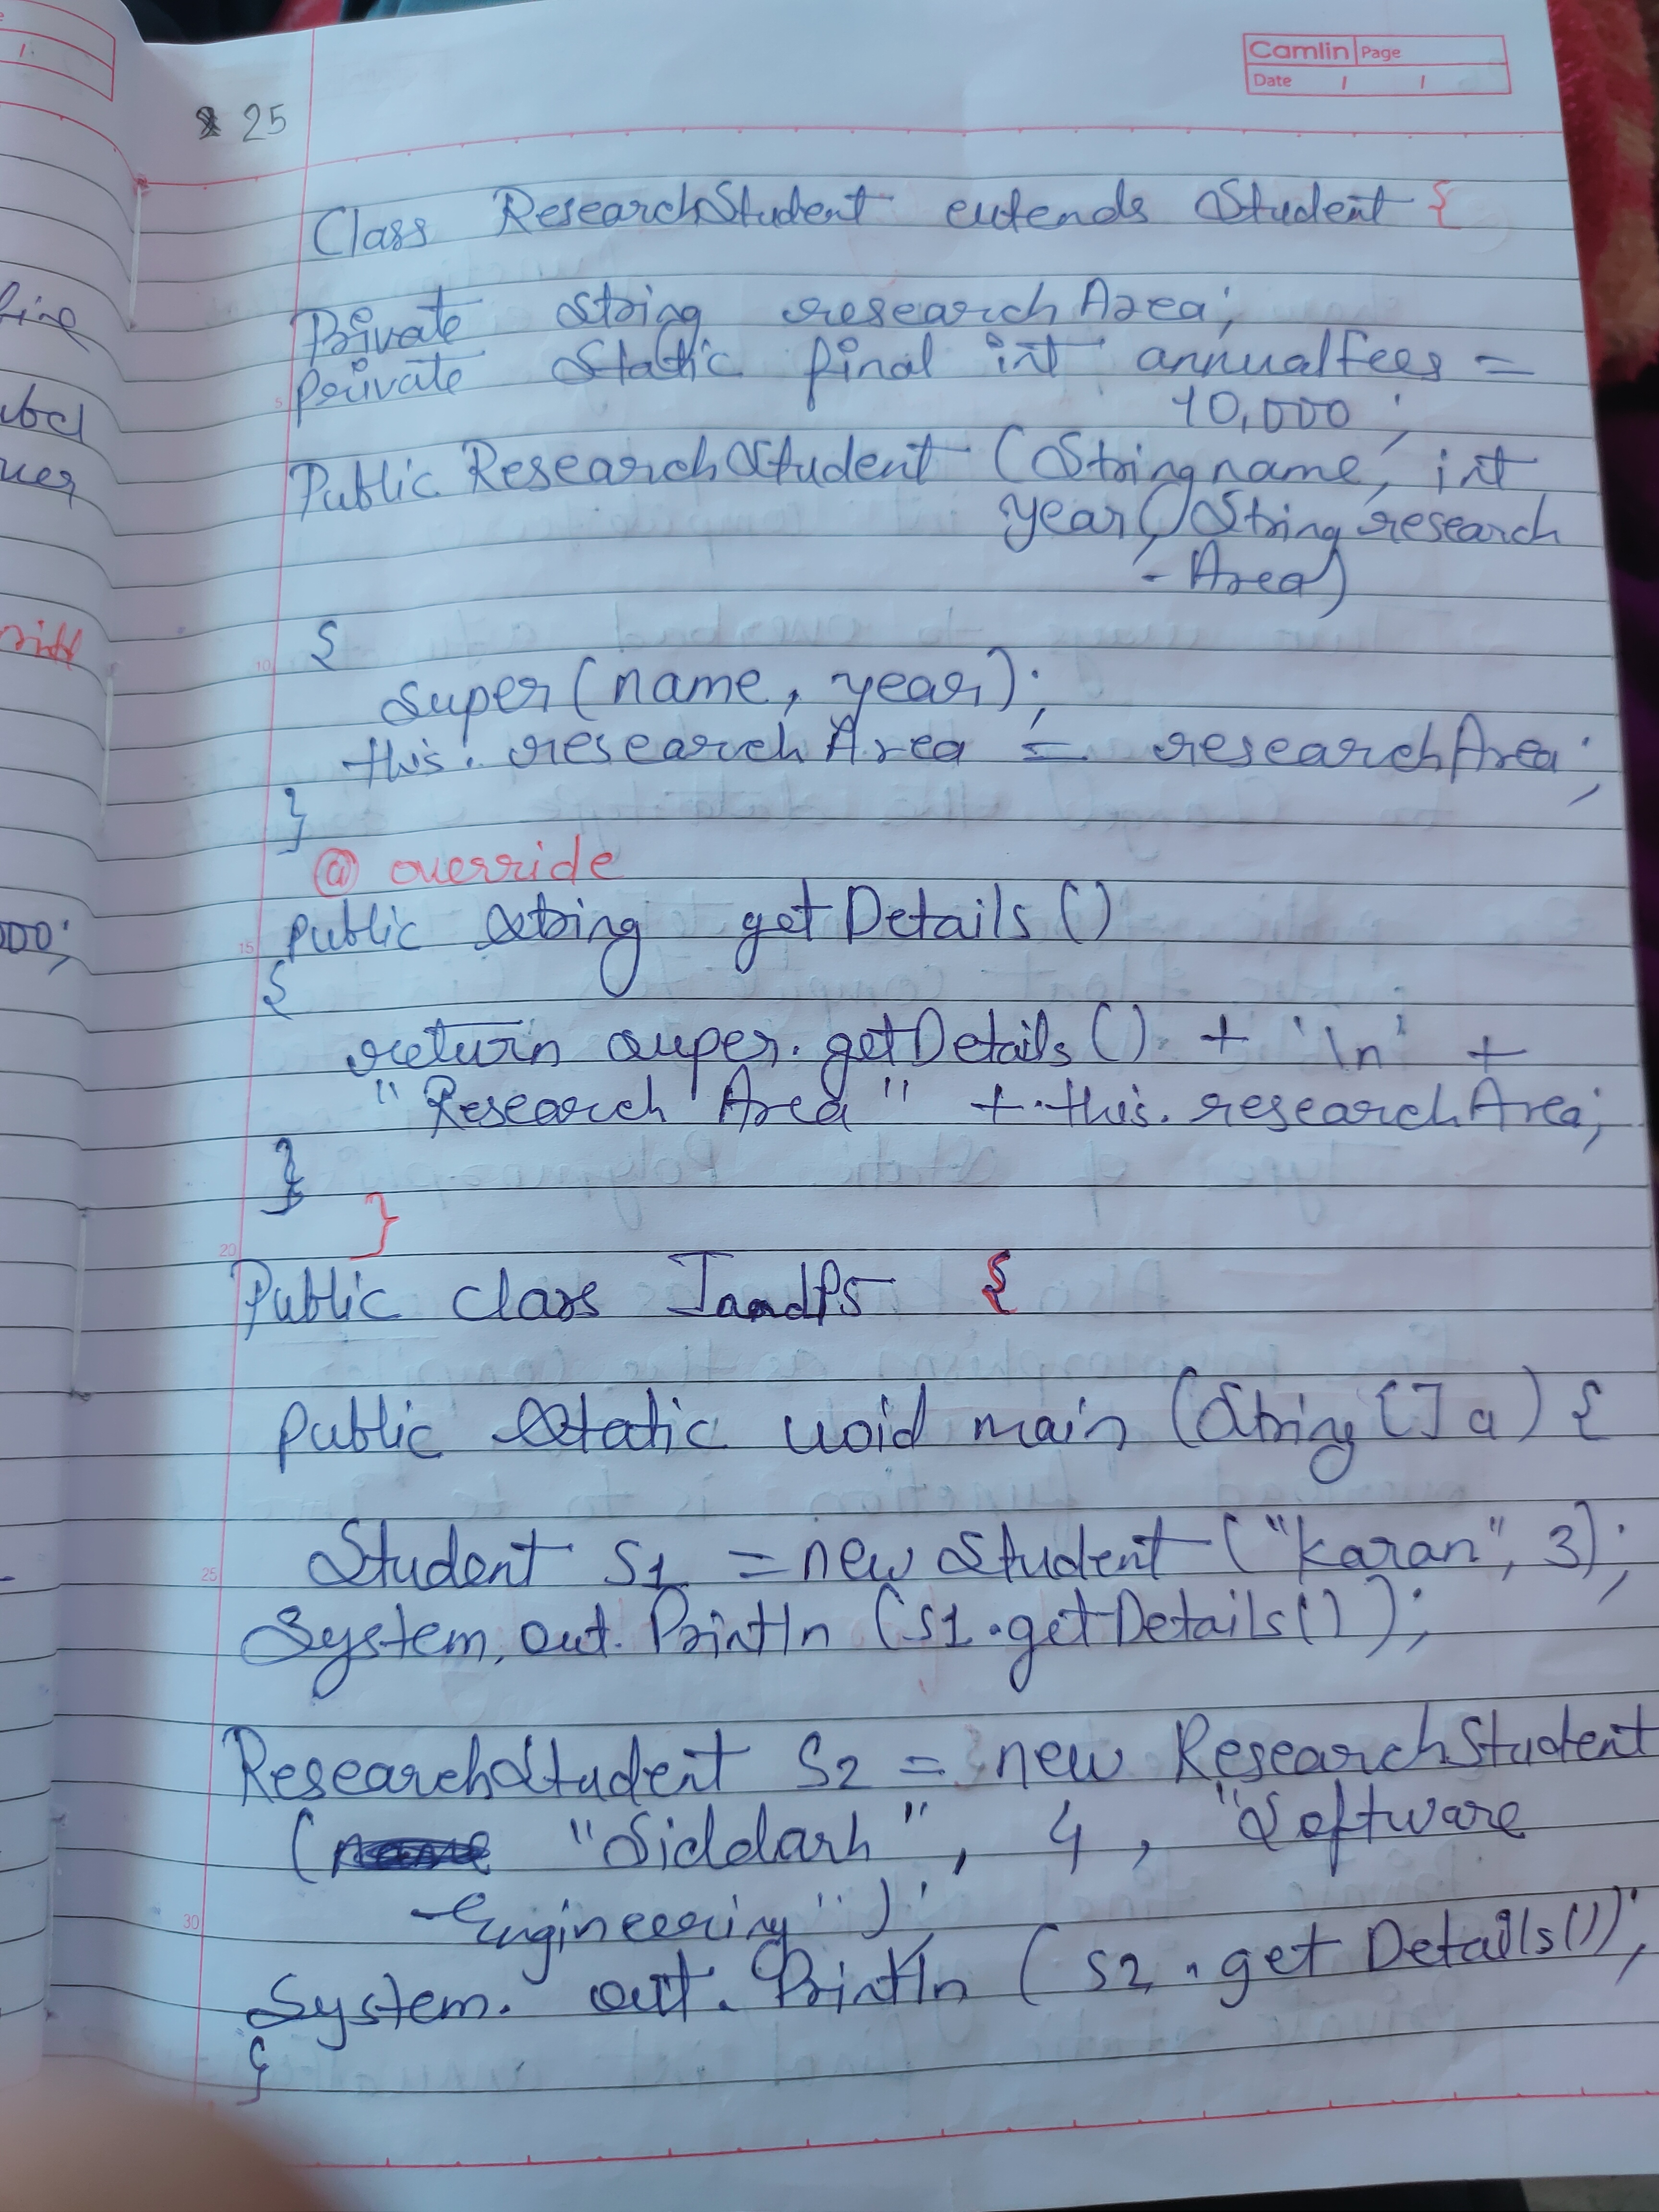 Camlin Page
Date / /
25
Class ResearchStudent extends Student {
Private String researchArea;
private Static final int annualfees =
10,000;
Public ResearchStudent (String name, int
year, String research
-Area)
{
super(name, year);
this. researchArea = researchArea;
}
@ override
public String getDetails ()
{
return super. getDetails () + '\n' +
"Research Area" + this. researchArea;
}
}
Public class IandPS {
public Static void main (String [] a) {
Student S1 = new Student ("Karan", 3);
System. out. Println (S1.getDetails());
ResearchStudent S2 = new ResearchStudent
( "Siddarh", 4, "Software
-Engineering");
System. out. Println (S2.getDetails());
}
5
10
15
20
25
30